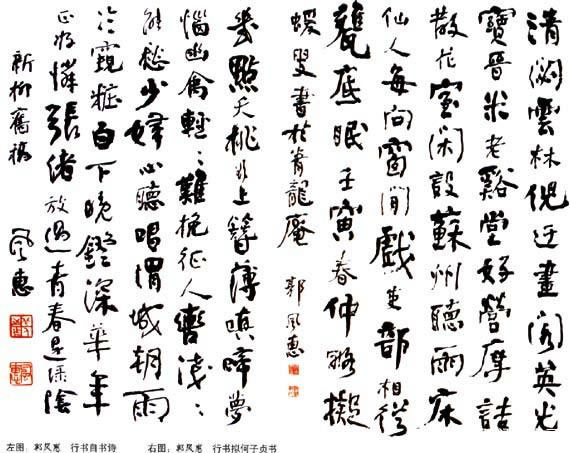 清閟雲林倪迂畫閣英光
寶晉米老谿堂好營摩詰
散花室闲設蘇州聽雨床
仙人每向窗間戲吏部相從
甕底眠 壬寅春仲略擬
蝯叟書於青龍庵 郭風惠
幾點夭桃上簪薄嗔啼夢
惱幽禽輕〻難挽征人轡淺〻
能愁少婦心聽唱渭城朝雨
冷窺粧白下晚鐙深華年
正好憐張緒放過青春是綠陰
新柳舊稿 風惠
左图：郭风惠 行书自书诗 右图：郭风惠 行书拟何子贞书